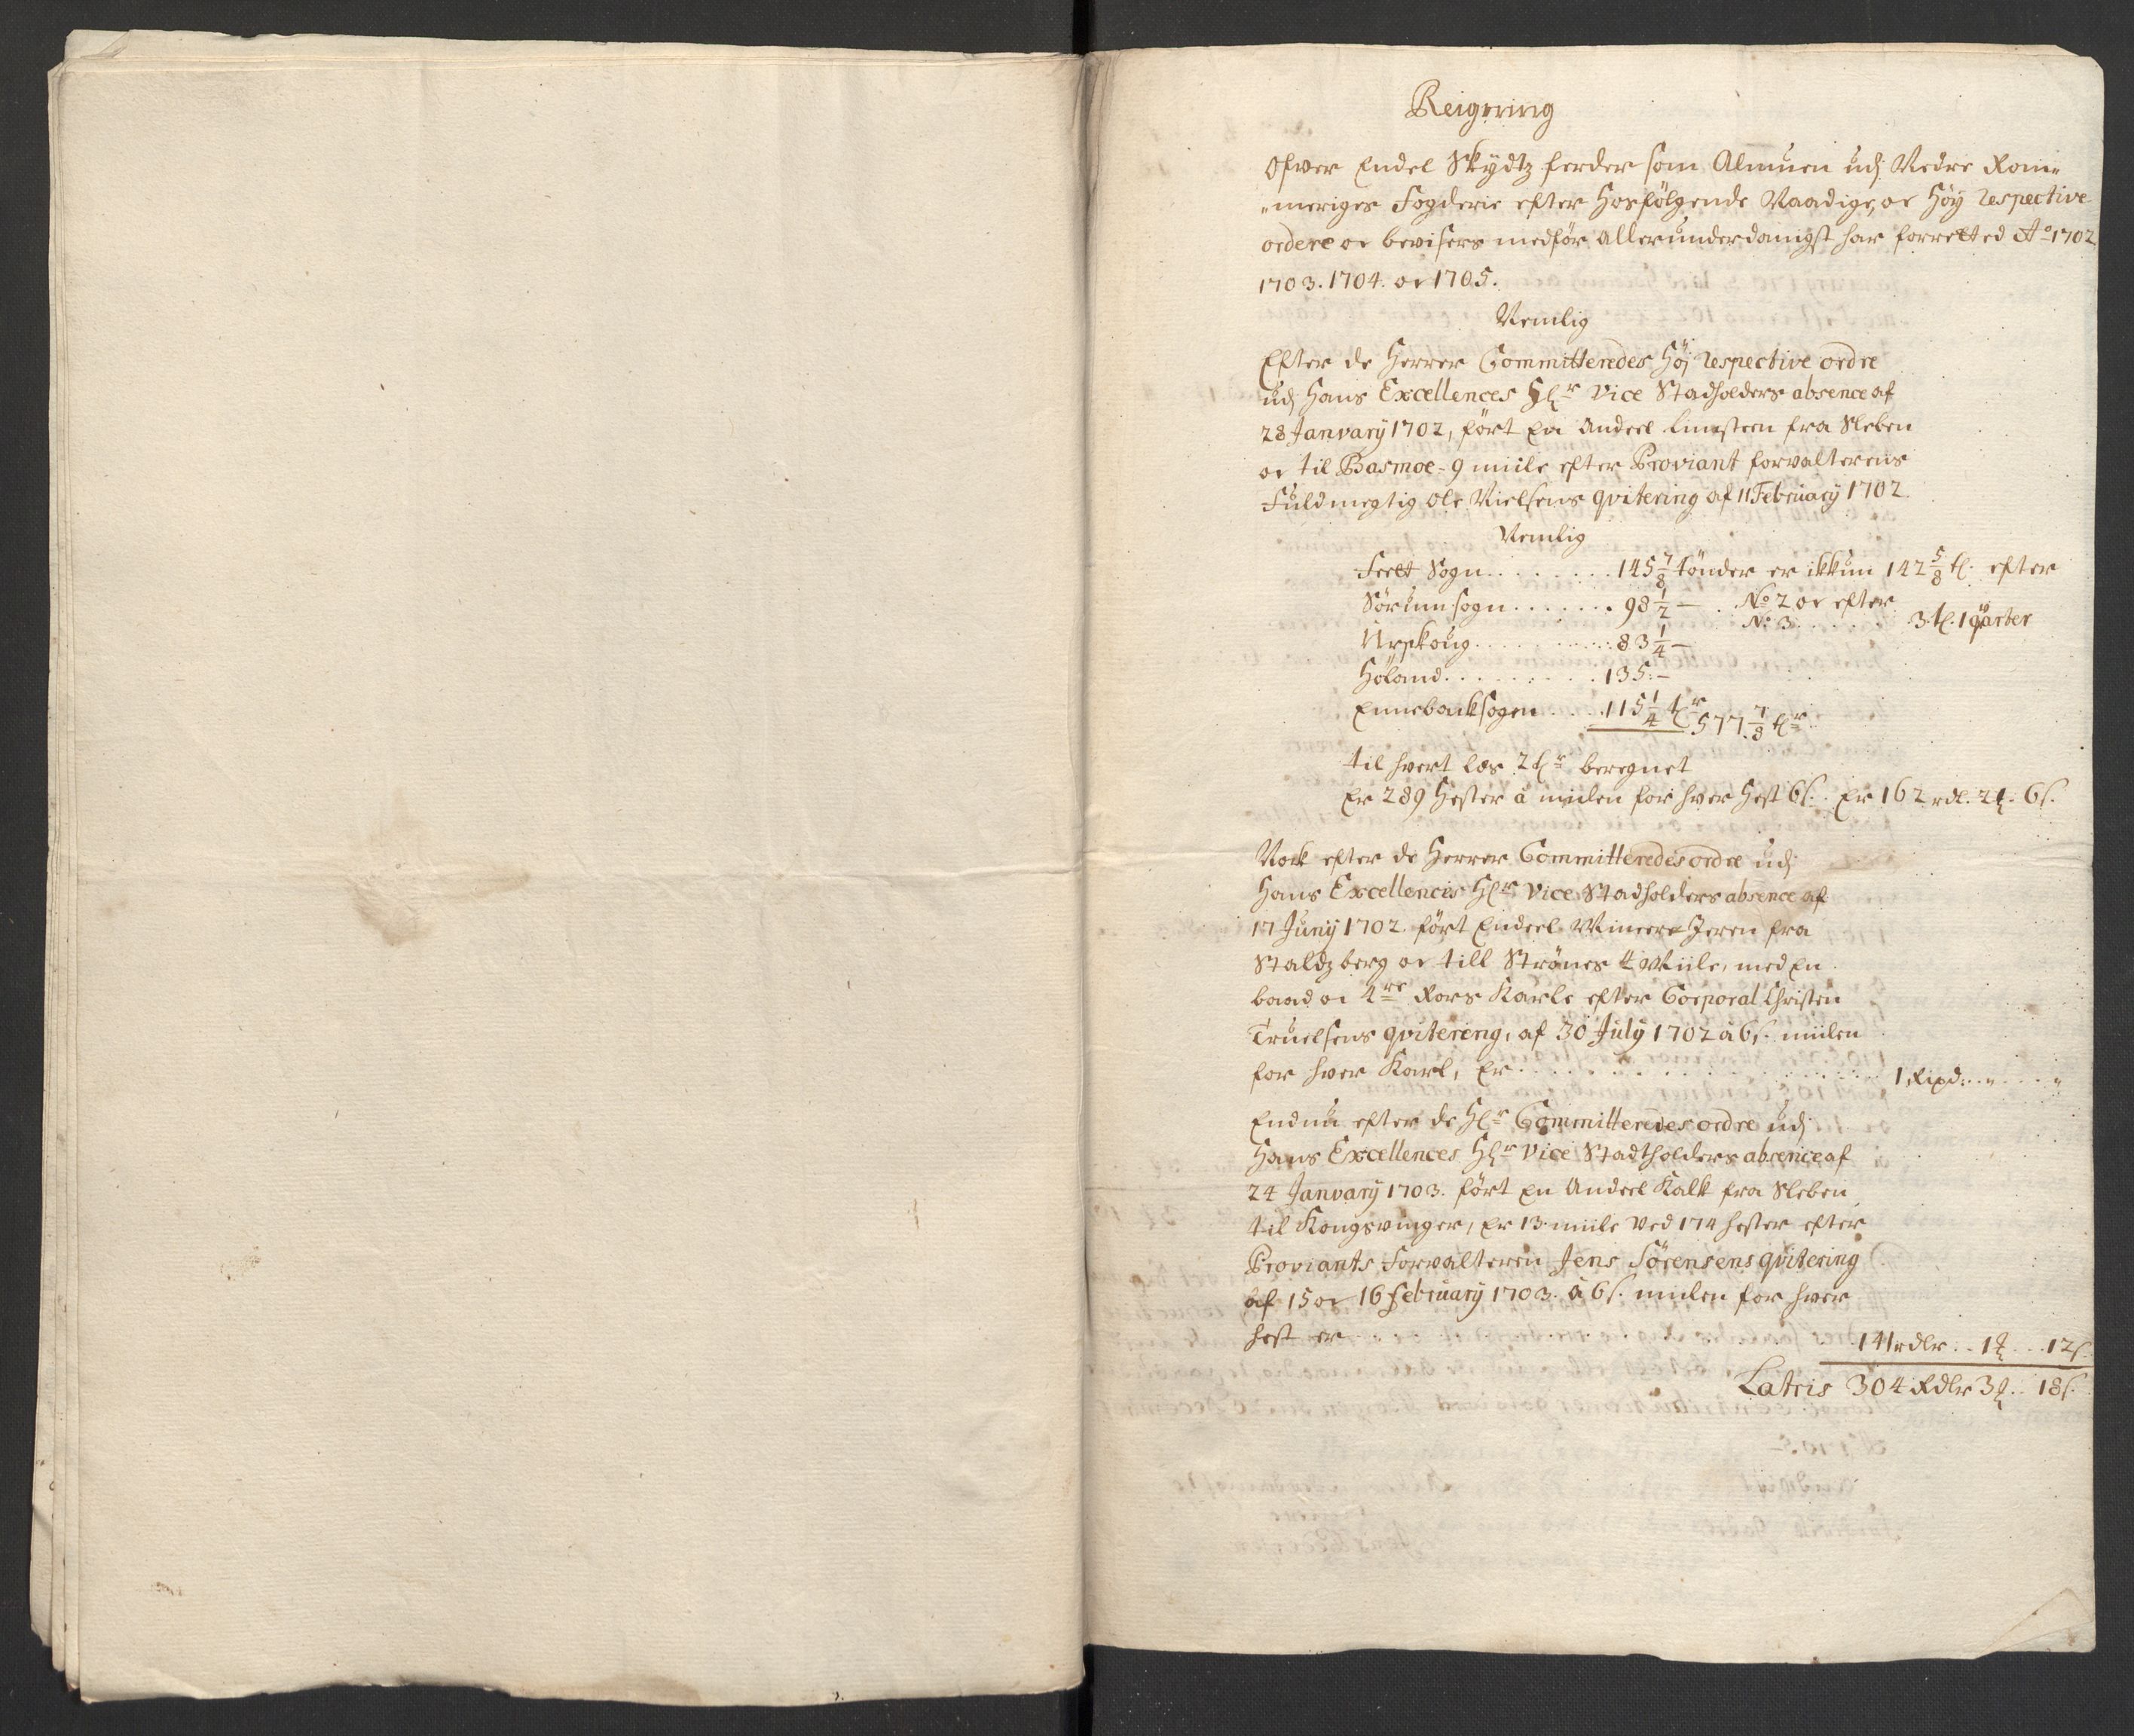 Reigning
Ofver Endel Skydtz ferder som Almuen udj Nedre Rom„
„meriges Fogderie efter Hosfölgende Naadige, oc Höy respective
ordere oc bevisers medför allerunderdanigst har forretted Ao 1702
1703. 1704. oc 1705.
Nemlig
Efter de Herrer Committeredes Höj respective ordre
udj Hans Excellences Hr Vice Stadholders absence af
28 January 1702, fört En Andeel Limsteen fra Sleben
oc til Basmoe - 9 miile efter Proviant forvalterens
Fuldmegtig Ole Nielsens qvitering af 11 February 1702
Nemlig
Feet Sogn . . . . . . . 145 7/8 tönder er ikkun 142 5/8 t. efter
Sörum sogn . . . . . . . 98 1/2 — No 2 oc efter
No 3 . . . . . 3 t. 1 qvarter
Urskoug . . . . . . . . . 83 1/4 —
Höland . . . . . . . . . 135. —
Ennebacksogen . . . . 115 1/4 tr 577 7/8 tr
til hvert læs 2 tr beregnet
Er 289 Hester â miilen for hver Hest 6 s. Er 162 rdl. 2 ort 6 s.
Nock efter de Herrer Committeredes ordre udj
Hans Excellencis Hr Vice Stadholders absence af
17 Juny 1702. fört Endeel Mineere Jeren fra
Staldzberg oc till Strönes 4 Miile, med En
baad oc 4re Rors Karle efter Corporal Christen
Truelsens qvitering, af 30 July 1702 â 6 s. miilen
for hver Karl, Er . . . . . . . . . . 1 Rixd. „ . . . „
Endnu efter de Hr Committeredes ordre udj
Hans Excellences Hr Vice Stadtholders absence af
24 January 1703. fört en Andeel Kalk fra Sleben
til Kongsvinger, Er 13 miile Ved 174 hester efter
Proviants Forvalteren Jens Sörensens qvitering
af 15 oc 16 February 1703. â 6 s. miilen for hver
hest er . . . . . . . . . . 141 rdlr . . 1 ort . . . 12 s.
Lateris 304 Rdlr 3 ort . . 18 s.